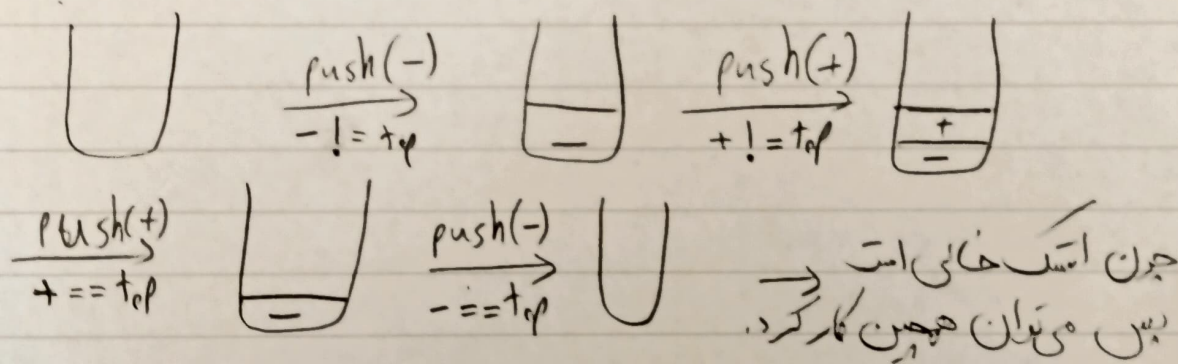 push(-)
- != top
-
push(+)
+ != top
+
-
push(+)
+ == top
-
push(-)
- == top
→ چون استک خالی است
پس می‌توان همچین کار کرد.